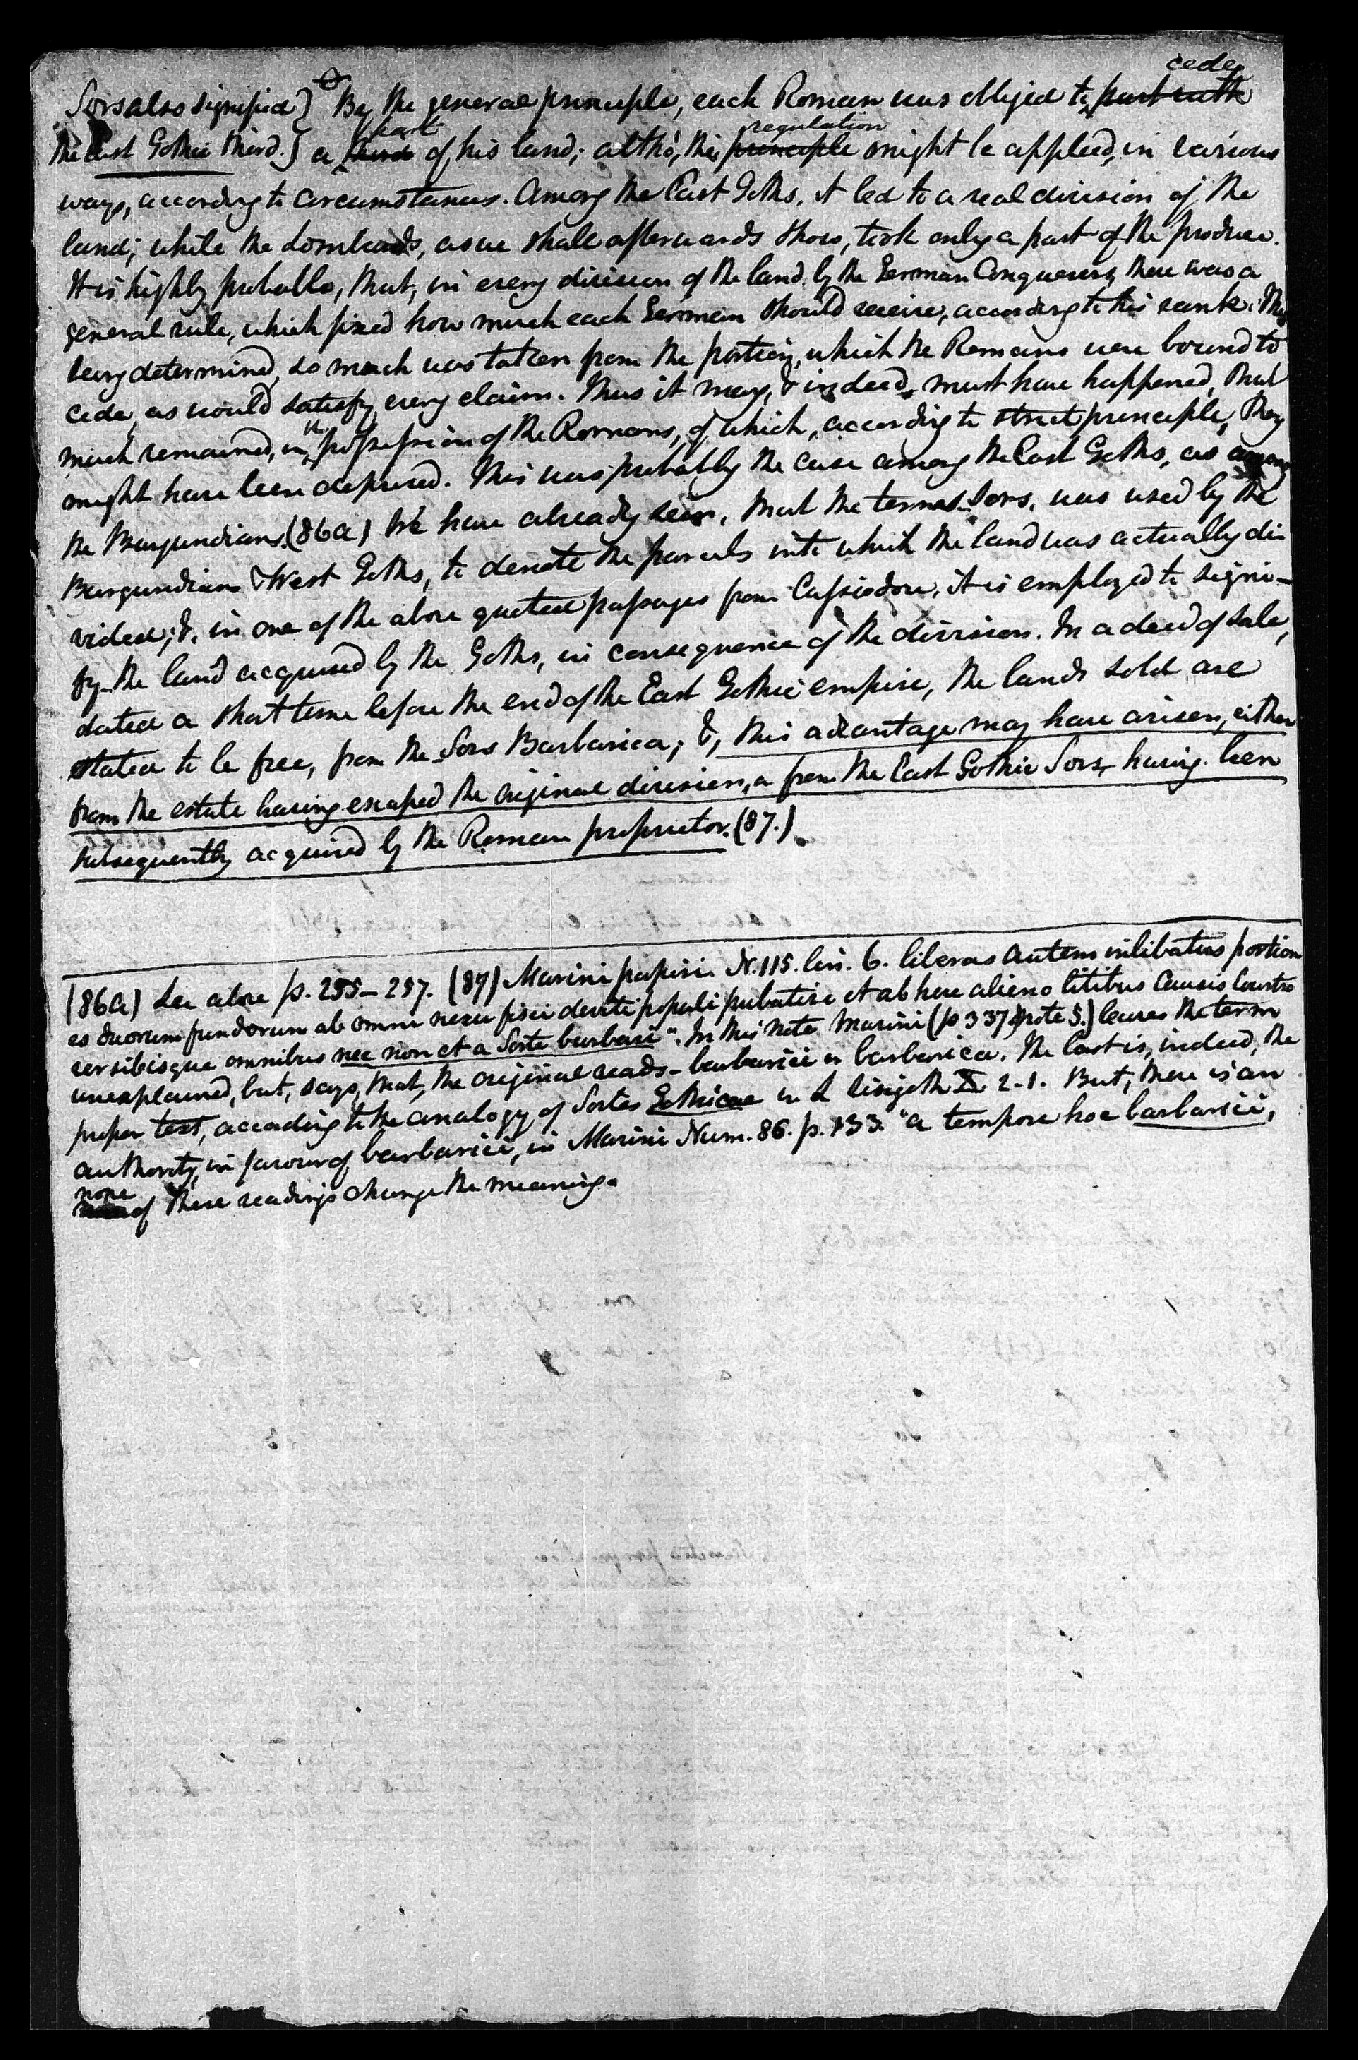 cede
Sors also signified } By the general principle, each Roman was obliged to part with
part regulation
the East Gothic third. } a third of his land; altho', this principle might be applied, in various
ways, according to circumstances. Among the East Goths, it led to a real division of the
land; while the Lombards, as we shall afterwards show, took only a part of the produce.
It is highly probable, that, in every division of the land by the German Conquerors, there was a
general rule, which fixed how much each German should receive, according to his rank. This
being determined, so much was taken from the portion, which the Romans were bound to
cede, as would satisfy every claim. Thus it may, & indeed, must have happened, that
much remained, in the possession of the Romans, of which, according to strict principle, they
might have been deprived. This was probably the case among the East Goths, as among
the Burgundians. (86a) We have already seen, that the term Sors, was used by the
Burgundians & West Goths, to denote the parcels into which the land was actually di-
vided; &, in one of the above quoted passages from Cassiodore, it is employed to signi-
fy the land acquired by the Goths, in consequence of the division. In a deed of sale,
dated a short time before the end of the East Gothic empire, the lands sold are
stated to be free, from the Sors Barbarica; &, this advantage may have arisen, either
from the estate having escaped the original division, or from the East Gothic Sors, having been
subsequently acquired by the Roman proprietor. (87.)
(86a) See above p. 255-257. (87) Marini papiri N. 115. lin. 6. liberas autem inlibatas portion
es duorum fundorum ab omni nexu fisci deviti populi pubative et ab here alieno litibus Causis Contro
versibisque omnibus nec non et a Sorte barbari". In this note Marini (p 337 note 5.) leaves the term
unexplained, but, says, that, the original reads - barbarici or barbarica. The last is, indeed, the
proper text, according to the analogy of Sortes Gothicae in L Visigoth X 2-1. But, there is an
authority, in favour of barbarici, in Marini Num. 86. p. 133. "a tempore hoc barbarici,
none of these readings change the meaning.